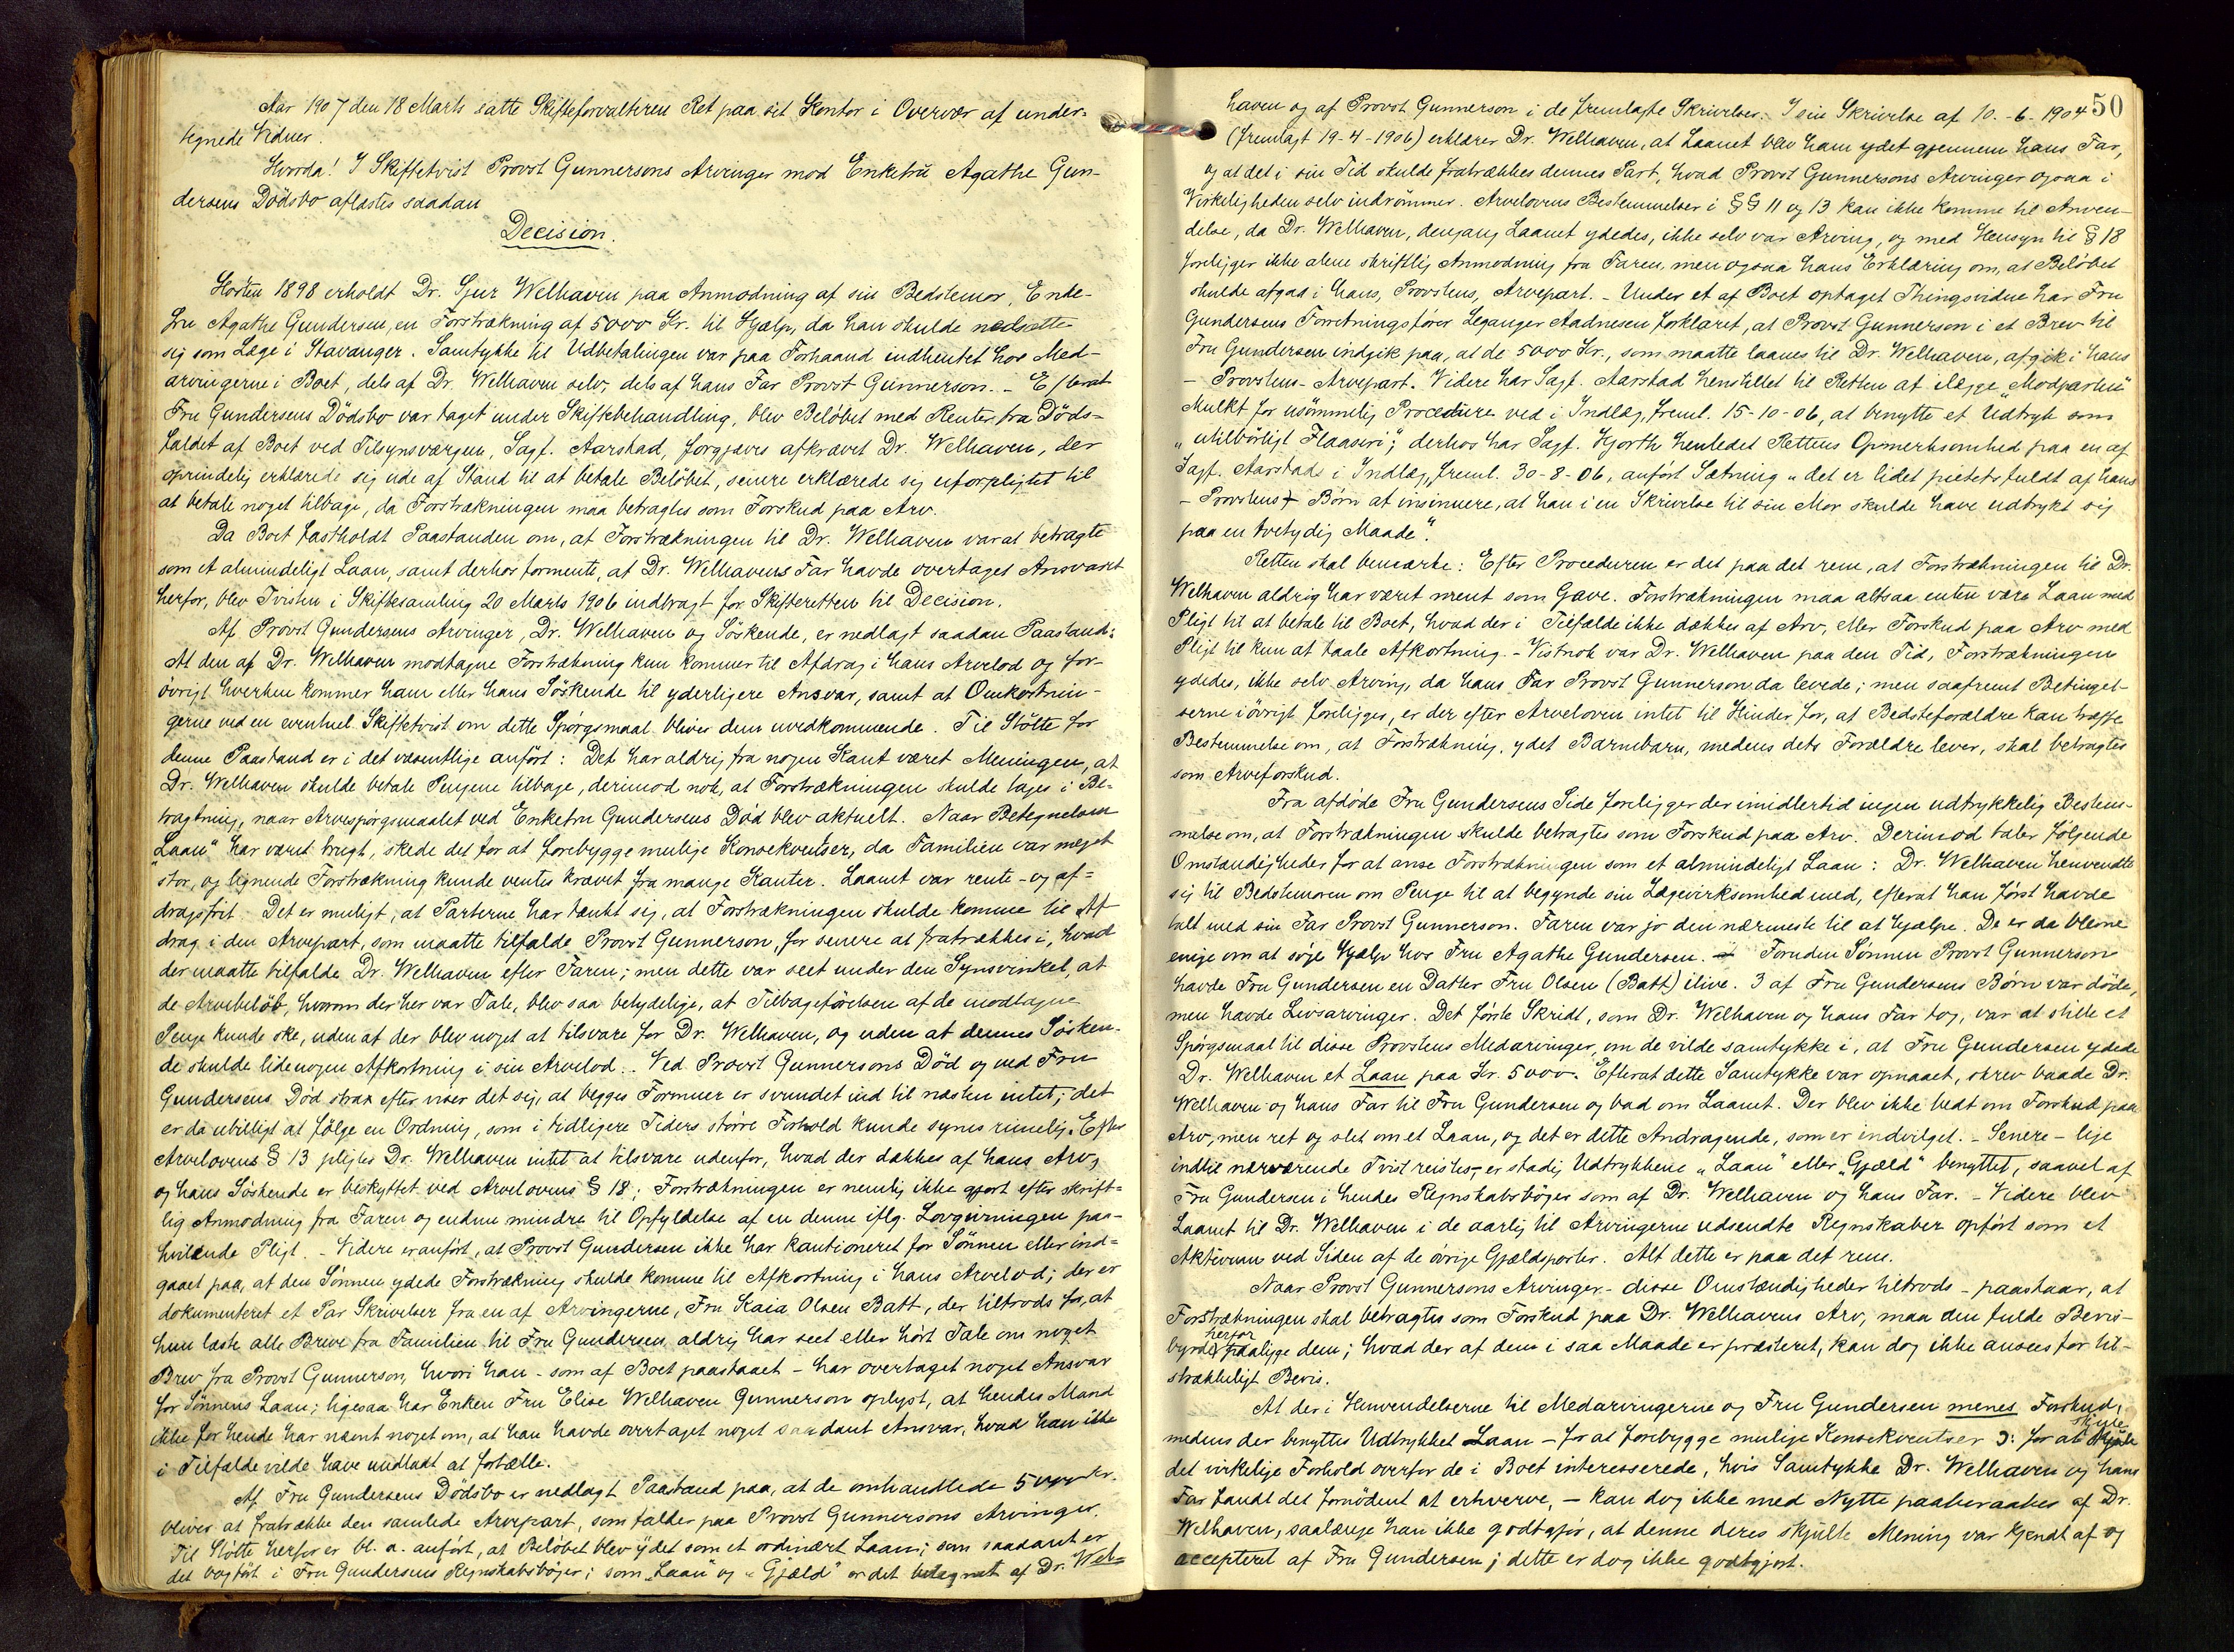 Aar 1907 den 18 Marts satte Skifteforvalteren Ret paa sit Kontor i Overvær af under-
tegnede Vidner.
Hvorda! I Skiftetvist Provst Gunnersons Arvinger mod Enkefru Agathe Gun-
dersens Dödsbo aflæstes saadan
Decision.
Hösten 1898 erholdt Dr. Sjur Welhaven paa Anmodning af sin Bedstemor, Enke-
fru Agathe Gundersen, en Forstrækning af 5000 Kr. til Hjælp, da han skulde nedsætte
sig som Læge i Stavanger. Samtykke til Udbetalingen var paa Forhaand indhentet hos Med-
arvingerne i Boet, dels af Dr. Welhaven selv, dels af hans Far Provst Gunnerson. - Efterat
Fru Gundersens Dödsbo var taget under Skiftebehandling, blev Beløbet med Renter fra Döds-
faldet af Boet ved Tilsynsværgen, Sagf. Aarstad, forgjæves afkrævet Dr. Welhaven, der
oprindelig erklærede sig ude af Stand til at betale Beløbet, senere erklærede sig uforpligtet til
at betale noget tilbage, da Forstrækningen maa betragtes som Forskud paa Arv.
Da Boet fastholdt Paastanden om, at Forstrækningen til Dr. Welhaven var at betragte
som et almindeligt Laan, samt derhos formente, at Dr. Welhavens Far havde overtaget Ansvaret
herfor, blev Tvisten i Skiftesamling 20 Marts 1906 indbragt for Skifteretten til Decision.
Af Provst Gundersens Arvinger, Dr. Welhaven og Söskende, er nedlagt saadan Paastand:
At den af Dr. Welhaven modtagne Forstrækning kun kommer til Afdrag i hans Arvelod og for-
övrigt hverken kommer ham eller hans Söskende til yderligere Ansvar, samt at Omkostnin-
gerne ved en eventuel Skiftetvist om dette Spörgsmaal bliver dem uvedkommende. Til Stötte for
denne Paastand er i det væsentlige anfört: Det har aldrig fra nogen Kant været Meningen, at
Dr. Welhaven skulde betale Pengene tilbage, derimod nok, at Forstrækningen skulde tages i Be-
tragtning, naar Arvespörgsmaalet ved Enkefru Gundersens Död blev aktuelt. Naar Betegnelsen
"Laan" har været brugt, skede det for at forebygge mulige Konsekvenser, da Familien var meget
stor, og lignende Forstrækning kunde ventes krævet fra mange Kanter. Laanet var rente- og af=
dragsfrit. Det er muligt, at Parterne har tænkt sig, at Forstrækningen skulde komme til Af
drag i den Arvepart, som maatte tilfalde Provst Gunnerson, for senere at fratrækkes i, hvad
der maatte tilfalde Dr. Welhaven efter Faren; men dette var seet under den Synsvinkel, at
de Arvebeløb, hvorom der her var Tale, blev saa betydelige, at Tilbageförelsen af de modtagne
Penge kunde ske, uden at der blev noget at tilsvare for Dr. Welhaven, og uden at dennes Sösken-
de skulde lide nogen Afkortning i sin Arvelod. - Ved Provst Gunnersons Död og ved Fru
Gundersens Död strax efter viser det sig, at begges Formuer er svundet ind til næsten intet; det
er da ubilligt at fölge en Ordning, som i tidligere Tiders större Forhold kunde synes rimelig. Efter
Arvelovens § 13 pligtes Dr. Welhaven intet at tilsvare udenfor, hvad der dækkes af hans Arv,
og hans Söskende er beskyttet ved Arvelovens § 18; Forstrækningen er nemlig ikke gjort efter skrift=
lig Anmodning fra Faren og endnu mindre til Opfyldelse af en denne iflg. Lovgivningen paa-
hvilende Pligt. - Videre er anfört, at Provst Gundersen ikke har kautioneret for Sönnen eller ind=
gaaet paa, at den Sönnen ydede Forstrækning skulde komme til Afkortning i hans Arvelod; der er
dokumenteret et Par Skrivelser fra en af Arvingerne, Fru Kaia Olsen Batt, der tiltrods for, at
hun læste alle Breve fra Familien til Fru Gundersen, aldrig har seet eller hört Tale om noget
Brev fra Provst Gunnerson, hvori han - som af Boet paastaaet - har overtaget noget Ansvar
for Sönnens Laan; ligesaa har Enken Fru Elise Welhaven Gunnerson oplyst, at hendes Mand
ikke for hende har nævnt noget om, at han havde overtaget noget saadant Ansvar, hvad han ikke
i Tilfælde vilde have undladt at fortælle.
Af Fru Gundersens Dödsbo er nedlagt Paastand paa, at de omhandlede 5000 Kr.
bliver at fratrække den samlede Arvepart, som falder paa Provst Gunnersons Arvinger.
Til Stötte herfor er bl. a. anfört, at Beløbet blev ydet som et ordinært Laan; som saadant er
det bogfört i Fru Gundersens Regnskabsböger; som "Laan" og "Gjæld" er det betegnet af Dr. Wel=
50
haven og af Provst Gunnerson i de fremlagte Skrivelser. I sin Skrivelse af 10.-6-1904
(fremlagt 19-4-1906) erklærer Dr. Welhaven, at Laanet blev ham ydet gjennem hans Far,
og at det i sin Tid skulde fratrækkes dennes Part, hvad Provst Gunnersons Arvinger ogsaa i
Virkeligheden selv indrömmer. Arvelovens Bestemmelser i §§ 11 og 13 kan ikke komme til Anven-
delse, da Dr. Welhaven, dengang Laanet ydedes, ikke selv var Arving, og med Hensyn til § 18
foreligger ikke alene skriftlig Anmodning fra Faren, men ogsaa hans Erklæring om, at Beløbet
skulde afgaa i hans, Provstens, Arvepart. - Under et af Boet optaget Thingsvidne har Fru
Gundersens Forretningsförer Leganger Aadnesen forklaret, at Provst Gunnerson i et Brev til
Fru Gundersen indgik paa, at de 5000 Kr., som maatte laanes til Dr. Welhaven, afgik i hans
- Provstens - Arvepart. Videre har Sagf. Aarstad henstillet til Retten at ilægge "Modparten"
Mulkt for usömmelig Procedure ved i Indlæg, freml. 15-10-06, at benytte et Udtryk som
"utilbörligt Flaaseri"; derhos har Sagf. Hjorth henledet Rettens Opmerksomhed paa en af
Sagf. Aarstads i Indlæg, freml. 30-8-06, anfört Sætning "det er lidet pietetsfuldt af hans
- Provstens - Börn at insinuere, at han i en Skrivelse til sin Mor skulde have udtrykt sig
paa en tvetydig Maade".
Retten skal bemærke: Efter Proceduren er det paa det rene, at Forstrækningen til Dr.
Welhaven aldrig har været ment som Gave. Forstrækningen maa altsaa enten være Laan med
Pligt til at betale til Boet, hvad der i Tilfælde ikke dækkes af Arv, eller Forskud paa Arv med
Pligt til kun at taale Afkortning. - Vistnok var Dr. Welhaven paa den Tid, Forstrækningen
ydedes, ikke selv Arving, da hans Far Provst Gunnerson da levede; men saafremt Betingel-
serne iövrigt foreligger, er der efter Arveloven intet til Hinder for, at Bedsteforældre kan træffe
Bestemmelse om, at Forstrækning, ydet Barnebarn, medens dets Forældre lever, skal betragtes
som Arveforskud.
Fra afdöde Fru Gundersens Side foreligger der imidlertid ingen udtrykkelig Bestem-
melse om, at Forstrækningen skulde betragtes som Forskud paa Arv. Derimod taler fölgende
Omstændigheder for at anse Forstrækningen som et almindeligt Laan: Dr. Welhaven henvendte
sig til Bedstemoren om Penge til at begynde sin Lægevirksomhed med, efterat han först havde
talt med sin Far Provst Gunnerson. Faren var jo den nærmeste til at hjælpe. De er da blevne
enige om at söge Hjælp hos Fru Agathe Gundersen. Foruden Sönnen Provst Gunnerson
havde Fru Gundersen en Datter Fru Olsen (Batt) ilive. 3 af Fru Gundersens Börn var döde,
men havde Livsarvinger. Det förste Skridt, som Dr. Welhaven og hans Far tog, var at stille et
Spörgsmaal til disse Provstens Medarvinger, om de vilde samtykke i, at Fru Gundersen ydede
Dr. Welhaven et Laan paa Kr. 5000. Efterat dette Samtykke var opnaaet, skrev baade Dr.
Welhaven og hans Far til Fru Gundersen og bad om Laanet. Der blev ikke bedt om Forskud paa
Arv, men ret og slet om et Laan, og det er dette Andragende, som er indvilget. - Senere - lige
indtil nærværende Tvist reistes - er stadig Udtrykkene "Laan" eller "Gjæld" benyttet, saavel af
Fru Gundersen i hendes Regnskabsböger som af Dr. Welhaven og hans Far. - Videre blev
Laanet til Dr. Welhaven i de aarlig til Arvingerne udsendte Regnskaber opfört som et
Aktivum ved Siden af de övrige Gjældsposter. Alt dette er paa det rene.
Naar Provst Gunnersons Arvinger - disse Omstændigheder tiltrods - paastaar, at
Forstrækningen skal betragtes som Forskud paa Dr. Welhavens Arv, maa den fulde Bevis-
byrde herfor paaligge dem; hvad der af dem i saa Maade er præsteret, kan dog ikke ansees for til-
strækkeligt Bevis.
At der i Henvendelserne til Medarvingerne og Fru Gundersen menes Forskud,
medens der benyttes Udtrykket Laan - for at forebygge mulige Konsekventser ɔ: for at skjule
det virkelige Forhold overfor de i Boet interesserede, hvis Samtykke Dr. Welhaven og hans
Far fandt det fornödent at erhverve, - kan dog ikke med Nytte paaberaabes af Dr.
Welhaven, saalænge han ikke godtgjör, at denne deres skjulte Mening var kjendt af og
accepteret af Fru Gundersen; dette er dog ikke godtgjort.